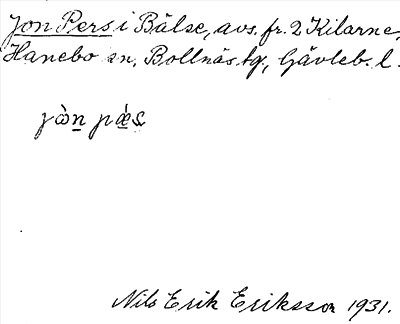 Jon Pers i Bälse, avs. fr. 2 Kilarne,
Hanebo sn, Bollnäs tg, Gävleb. l.
jòn pæ̀s
Nils Erik Eriksson 1931.